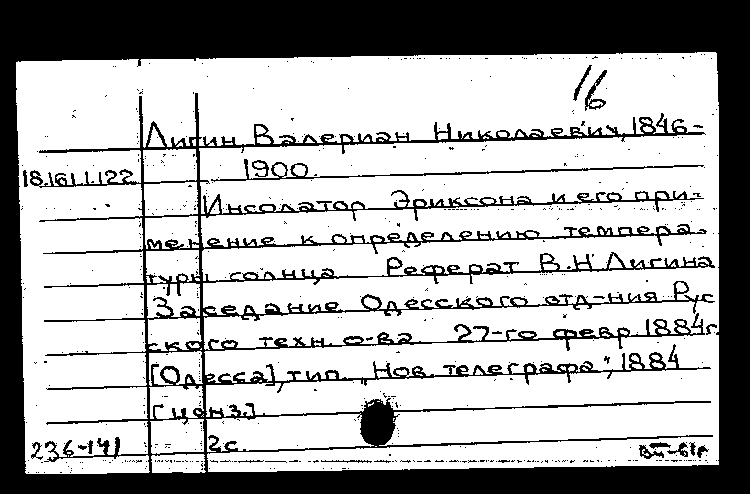 16
Лигин, Валериан Николаевич, 1846-
18.161.1.122 1900.
Инсолатор Эриксона и его при-
менение к определению темпера-
туры солнца Реферат В.Н Лигина
Заседание Одесского отд-ния Рус
ского техн. о-ва 27-го февр. 1884г.
[Одесса], тип. „Нов. телеграфа", 1884
[ценз.]
236-141 2с.